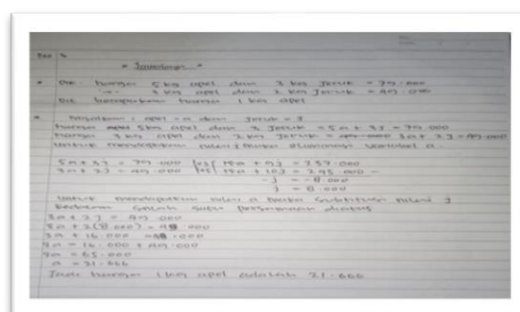 " Jawaban "
• Dik : harga 5 kg apel dan 3 kg Jeruk = 79.000
3 kg apel dan 2 kg Jeruk = 49.000
Dit berapakah harga 1 kg apel
• Misalkan : apel = a dan Jeruk = J
harga 5 kg apel dan 3 Jeruk = 5a + 3J = 79.000
harga 3 kg apel dan 2 kg Jeruk = 49.000 3a + 2J = 49.000
untuk mendapatkan nilai J maka eliminasi variabel a.
5a + 3J = 79.000 |x3| 15a + 9J = 237.000
3a + 2J = 49.000 |x5| 15a + 10J = 245.000 -
- J = - 8.000
J = 8.000
Untuk mendapatkan nilai a maka substitusi nilai J
kedalam salah satu persamaan diatas
3a + 2J = 49.000
3a + 2(8.000) = 49.000
3a + 16.000 = 49.000
3a = 16.000 + 49.000
3a = 65.000
a = 21.666
Jadi harga 1 kg apel adalah 21.666